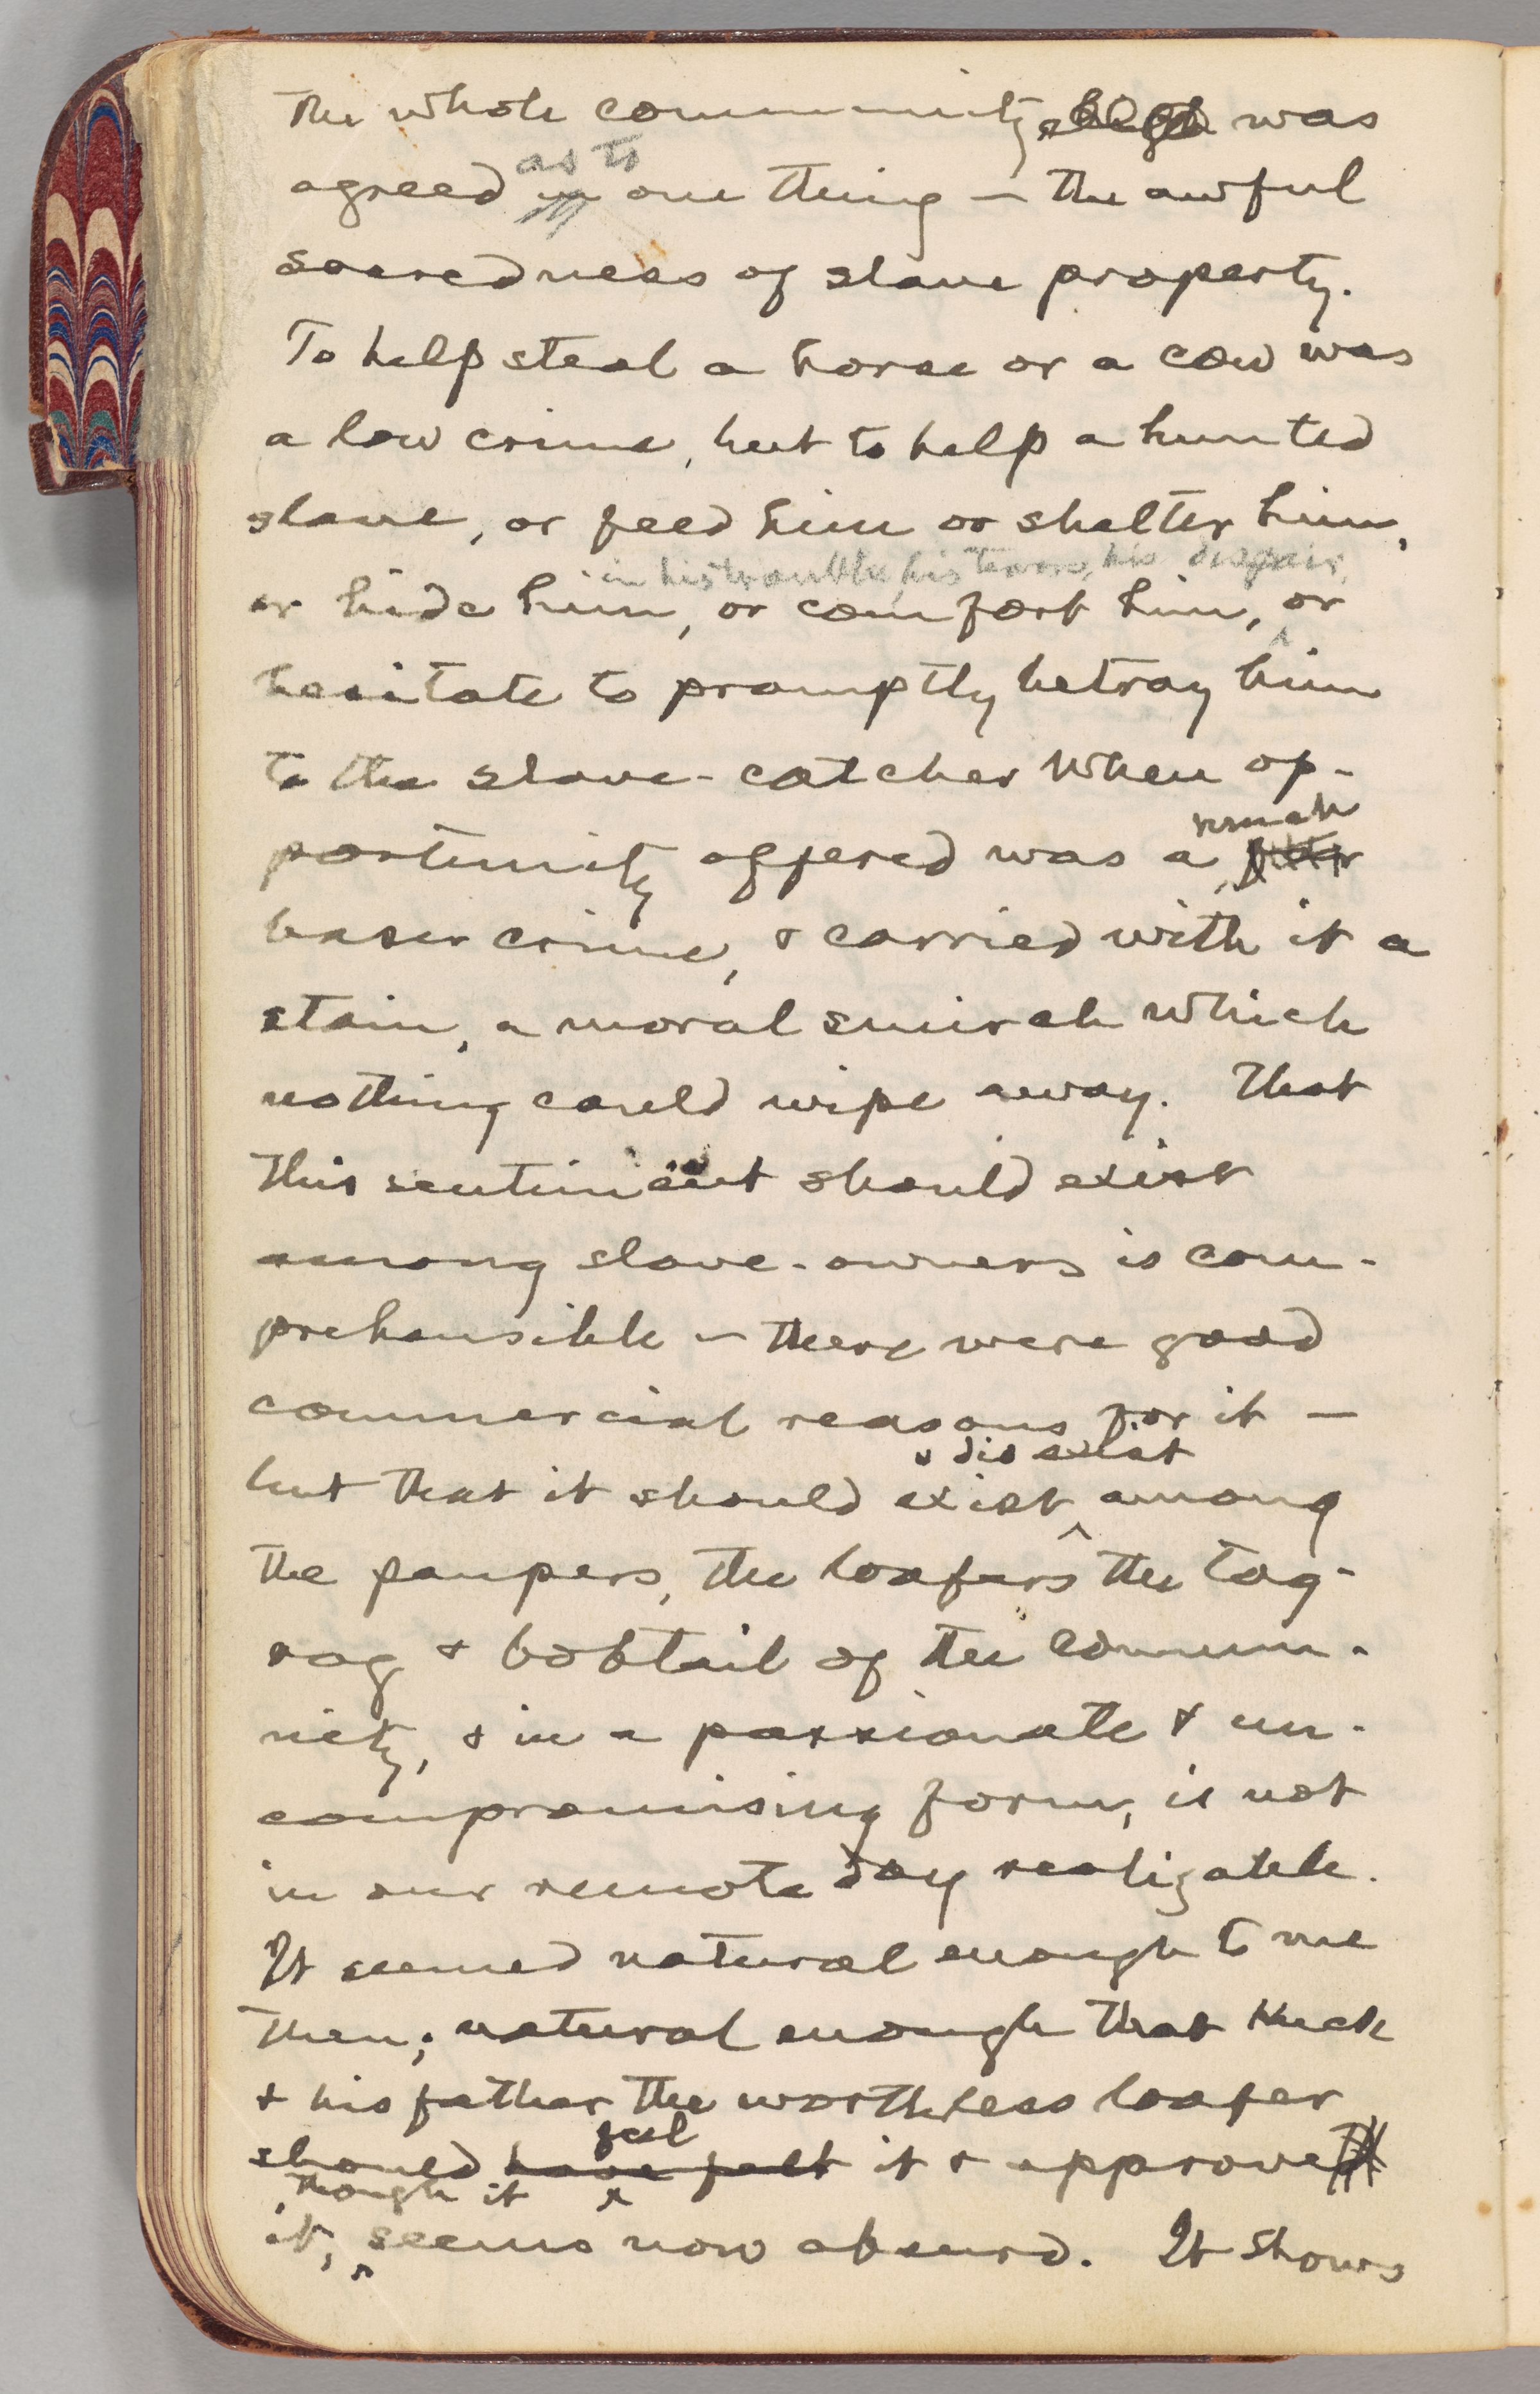 The whole community was
as to
agreed in one thing — the awful
sacredness of slave property.
To help steal a horse or a cow was
a low crime, but to help a hunted
slave, or feed him or shelter him,
in his trouble, his terrors, his despair,
or hide him, or comfort him, or
hesitate to promptly betray him
to the slave-catcher when op-
much
portunity offered was a
baser crime, & carried with it a
stain, a moral smirch which
nothing could wipe away. That
this sentiment should exist
among slave-owners is com-
prehensible — there were good
commercial reasons for it —
& did exist
but that it should exist among
the paupers, the loafers the tag-
rag & bobtail of the commu-
nity, & in a passionate & un-
compromising form, is not
in our remote day realizable.
It seemed natural enough to me
then; natural enough that Huck
& his father the worthless loafer
feel
should have felt it & approve
though it
it, seems now absurd. It shows